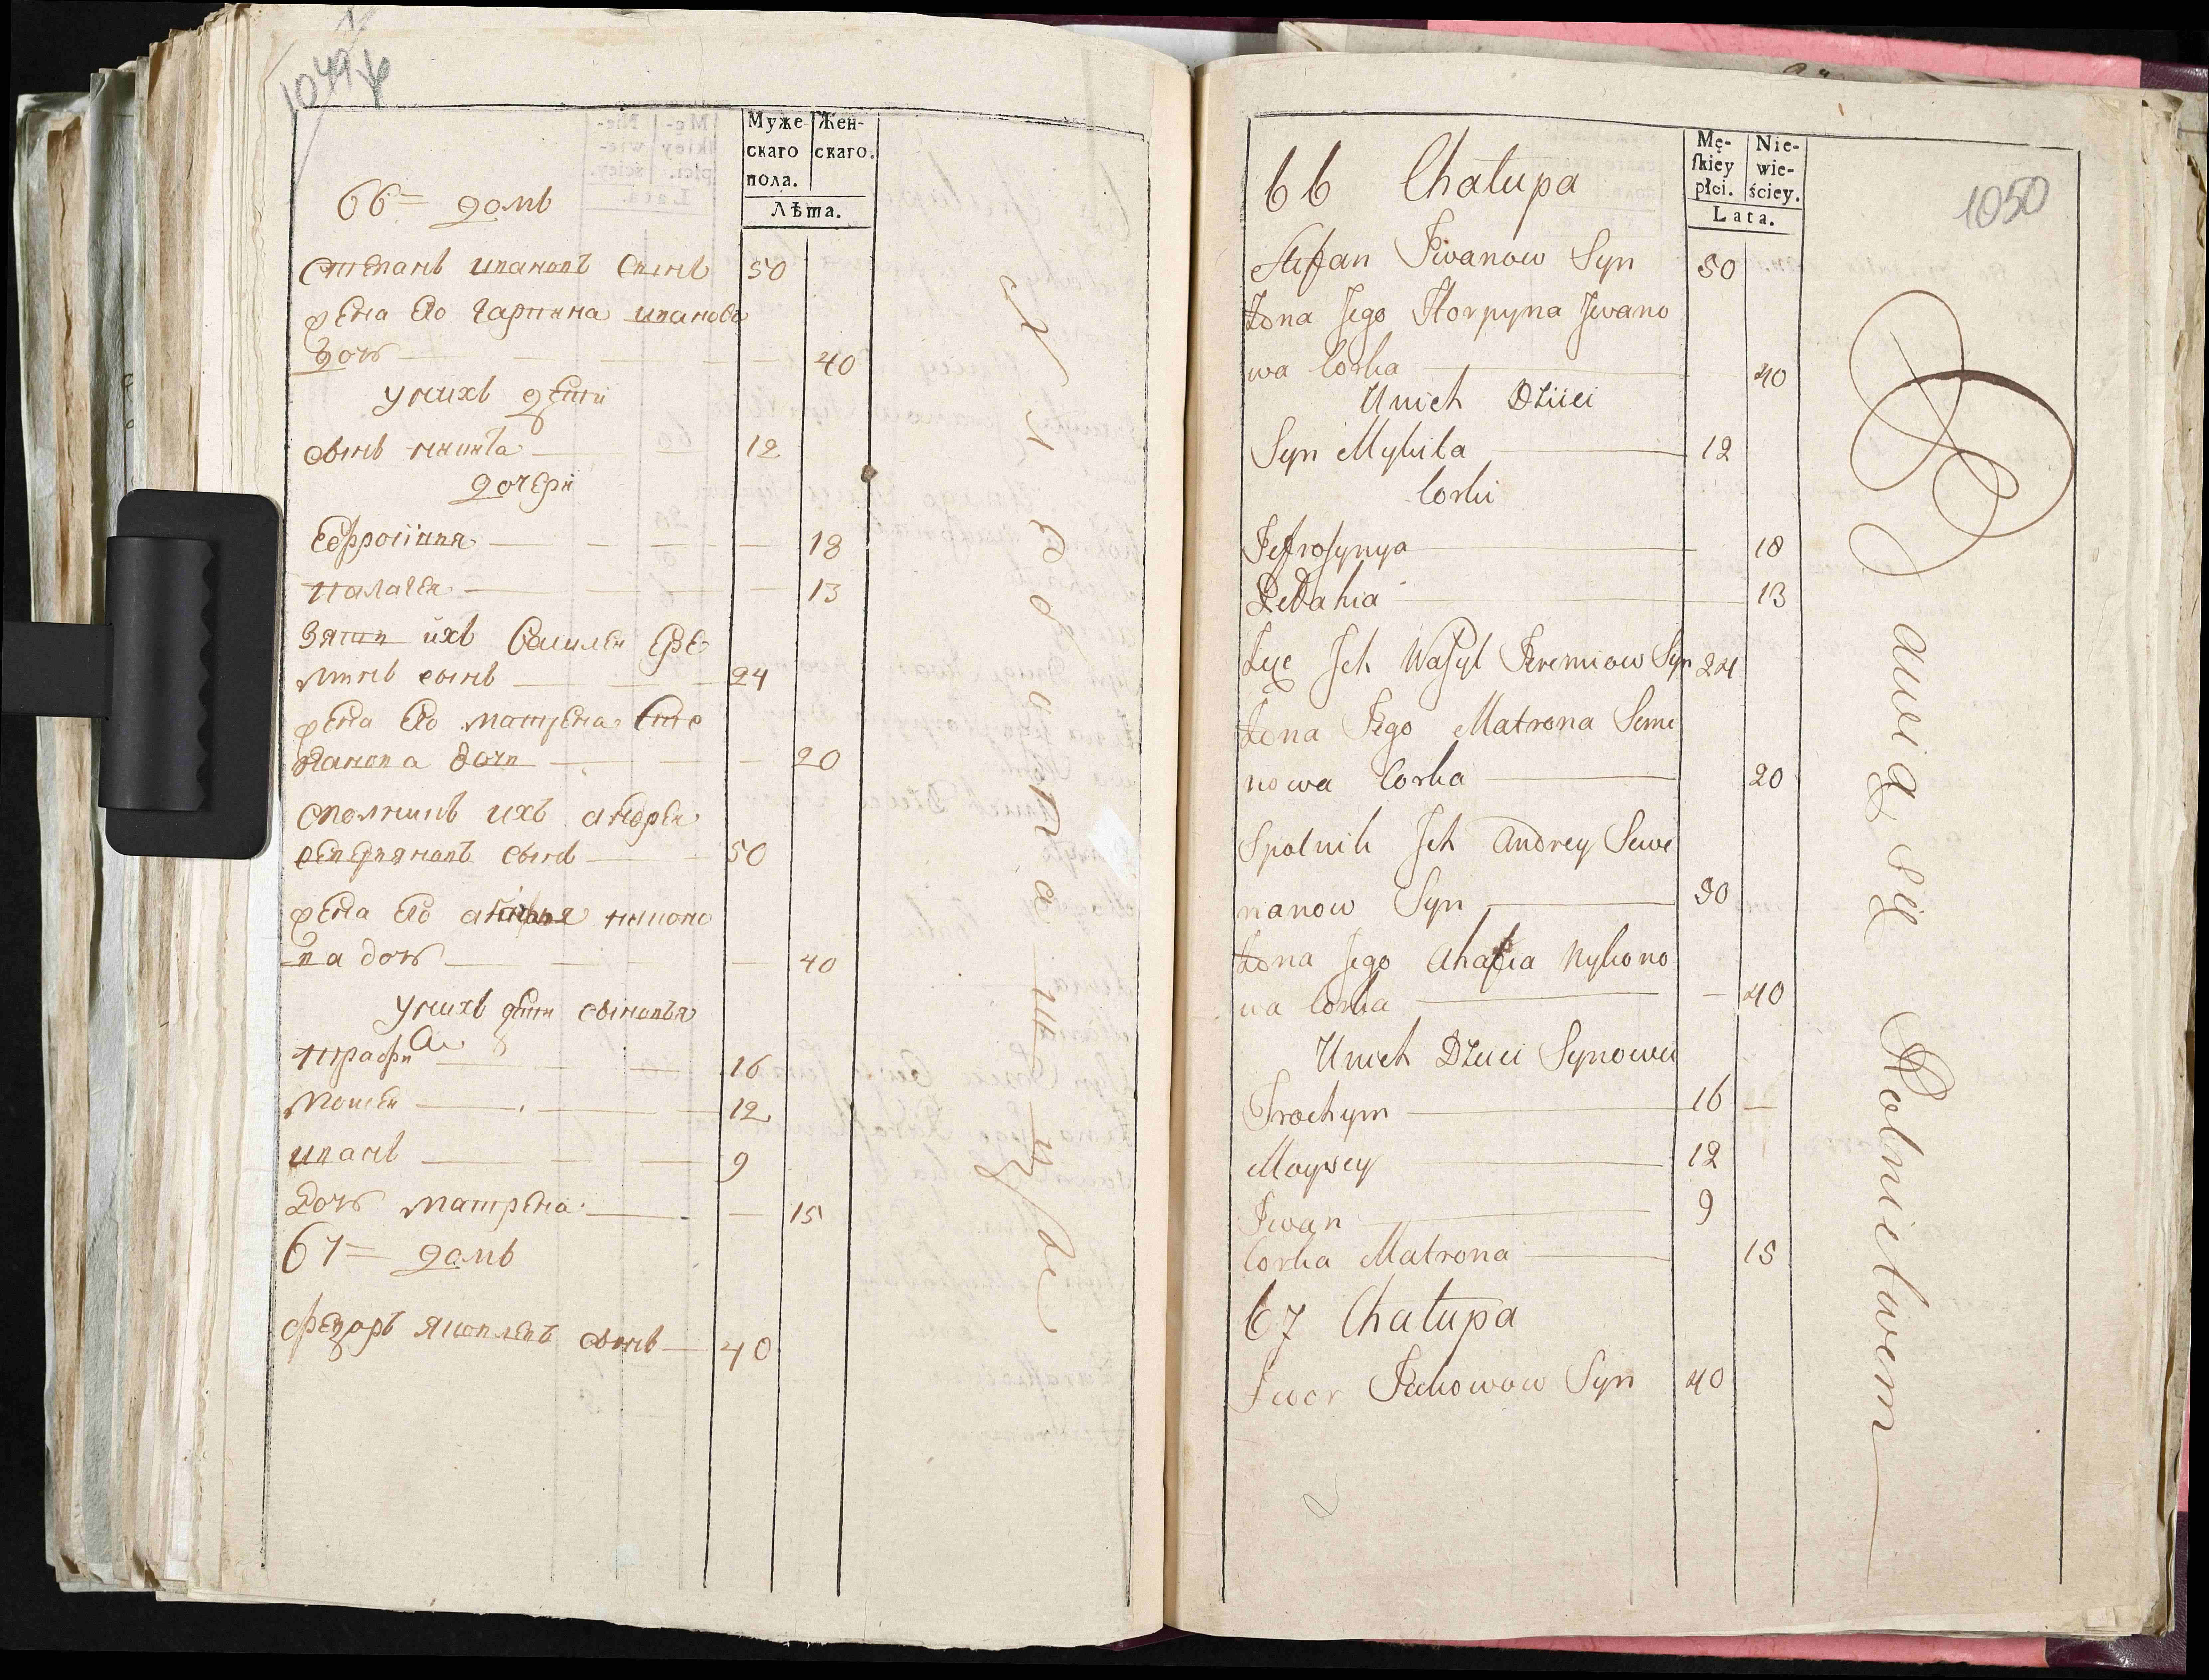 1049
Муже-
скаго
пола.
Жен-
скаго.
Лѣта.
66 = домъ
Степанъ ивановъ сынъ 50
жена его гарпина иванова
дочь 40
у нихъ дети
сынъ никита 12
дочери
Ефросиния 18
палагея 13
Зять ихъ василей Ере
минъ сынъ 24
жена его матрена Сте
панова дочь 20
сполникъ ихъ андрей
северяновъ сынъ 50
жена его никоно
ва дочь 40
у нихъ дети сыновья
16
Моисей 12
иванъ 9
Дочь матрена 15
67 = домъ
федоръ яковлевъ сынъ 40
1050
Mę-
skiey
płci.
Nie-
wie-
ściey.
Lata.
66 Chałupa
Stefan Iwanow Syn 50
Żona Jego Horpyna Jwano
wa Corka 40
U nich Dzieci
Syn Mykita 12
Corki
Jefrosynya 18
Pelahia 13
Zięć Jch Wasyl Jeremiow Syn 24
Żona Jego Matrona Seme
nowa Corka 20
Spolnik Jch Andrey Sewe
rianow Syn 50
Żona Jego Ahafia Nykono
wa Corka 40
U nich Dzieci Synowie
Trochym 16
Moysey 12
Iwan 9
Corka Matrona 15
67 Chałupa
Fedor Jakowow Syn 40
Bawią się Rolnictwem